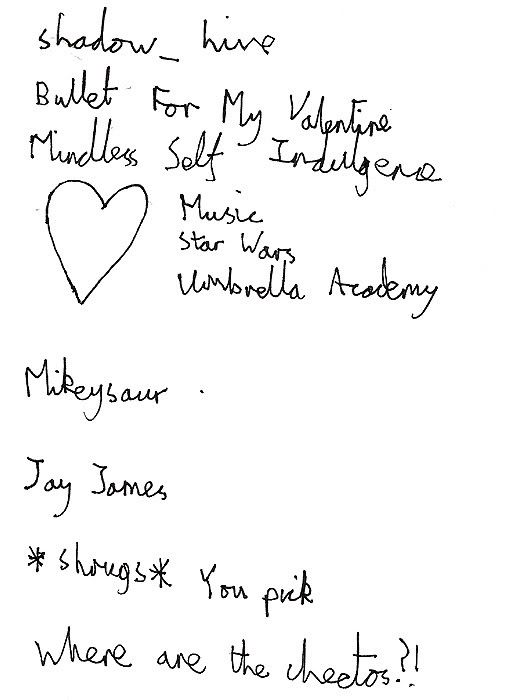 shadow_ hive
Bullet For My Valentine
Mindless Self Indulgence
Music
Star Wars
Umbrella Academy
Mikeysaur
Jay James
*shrugs* You pick
Where are the cheetos?!